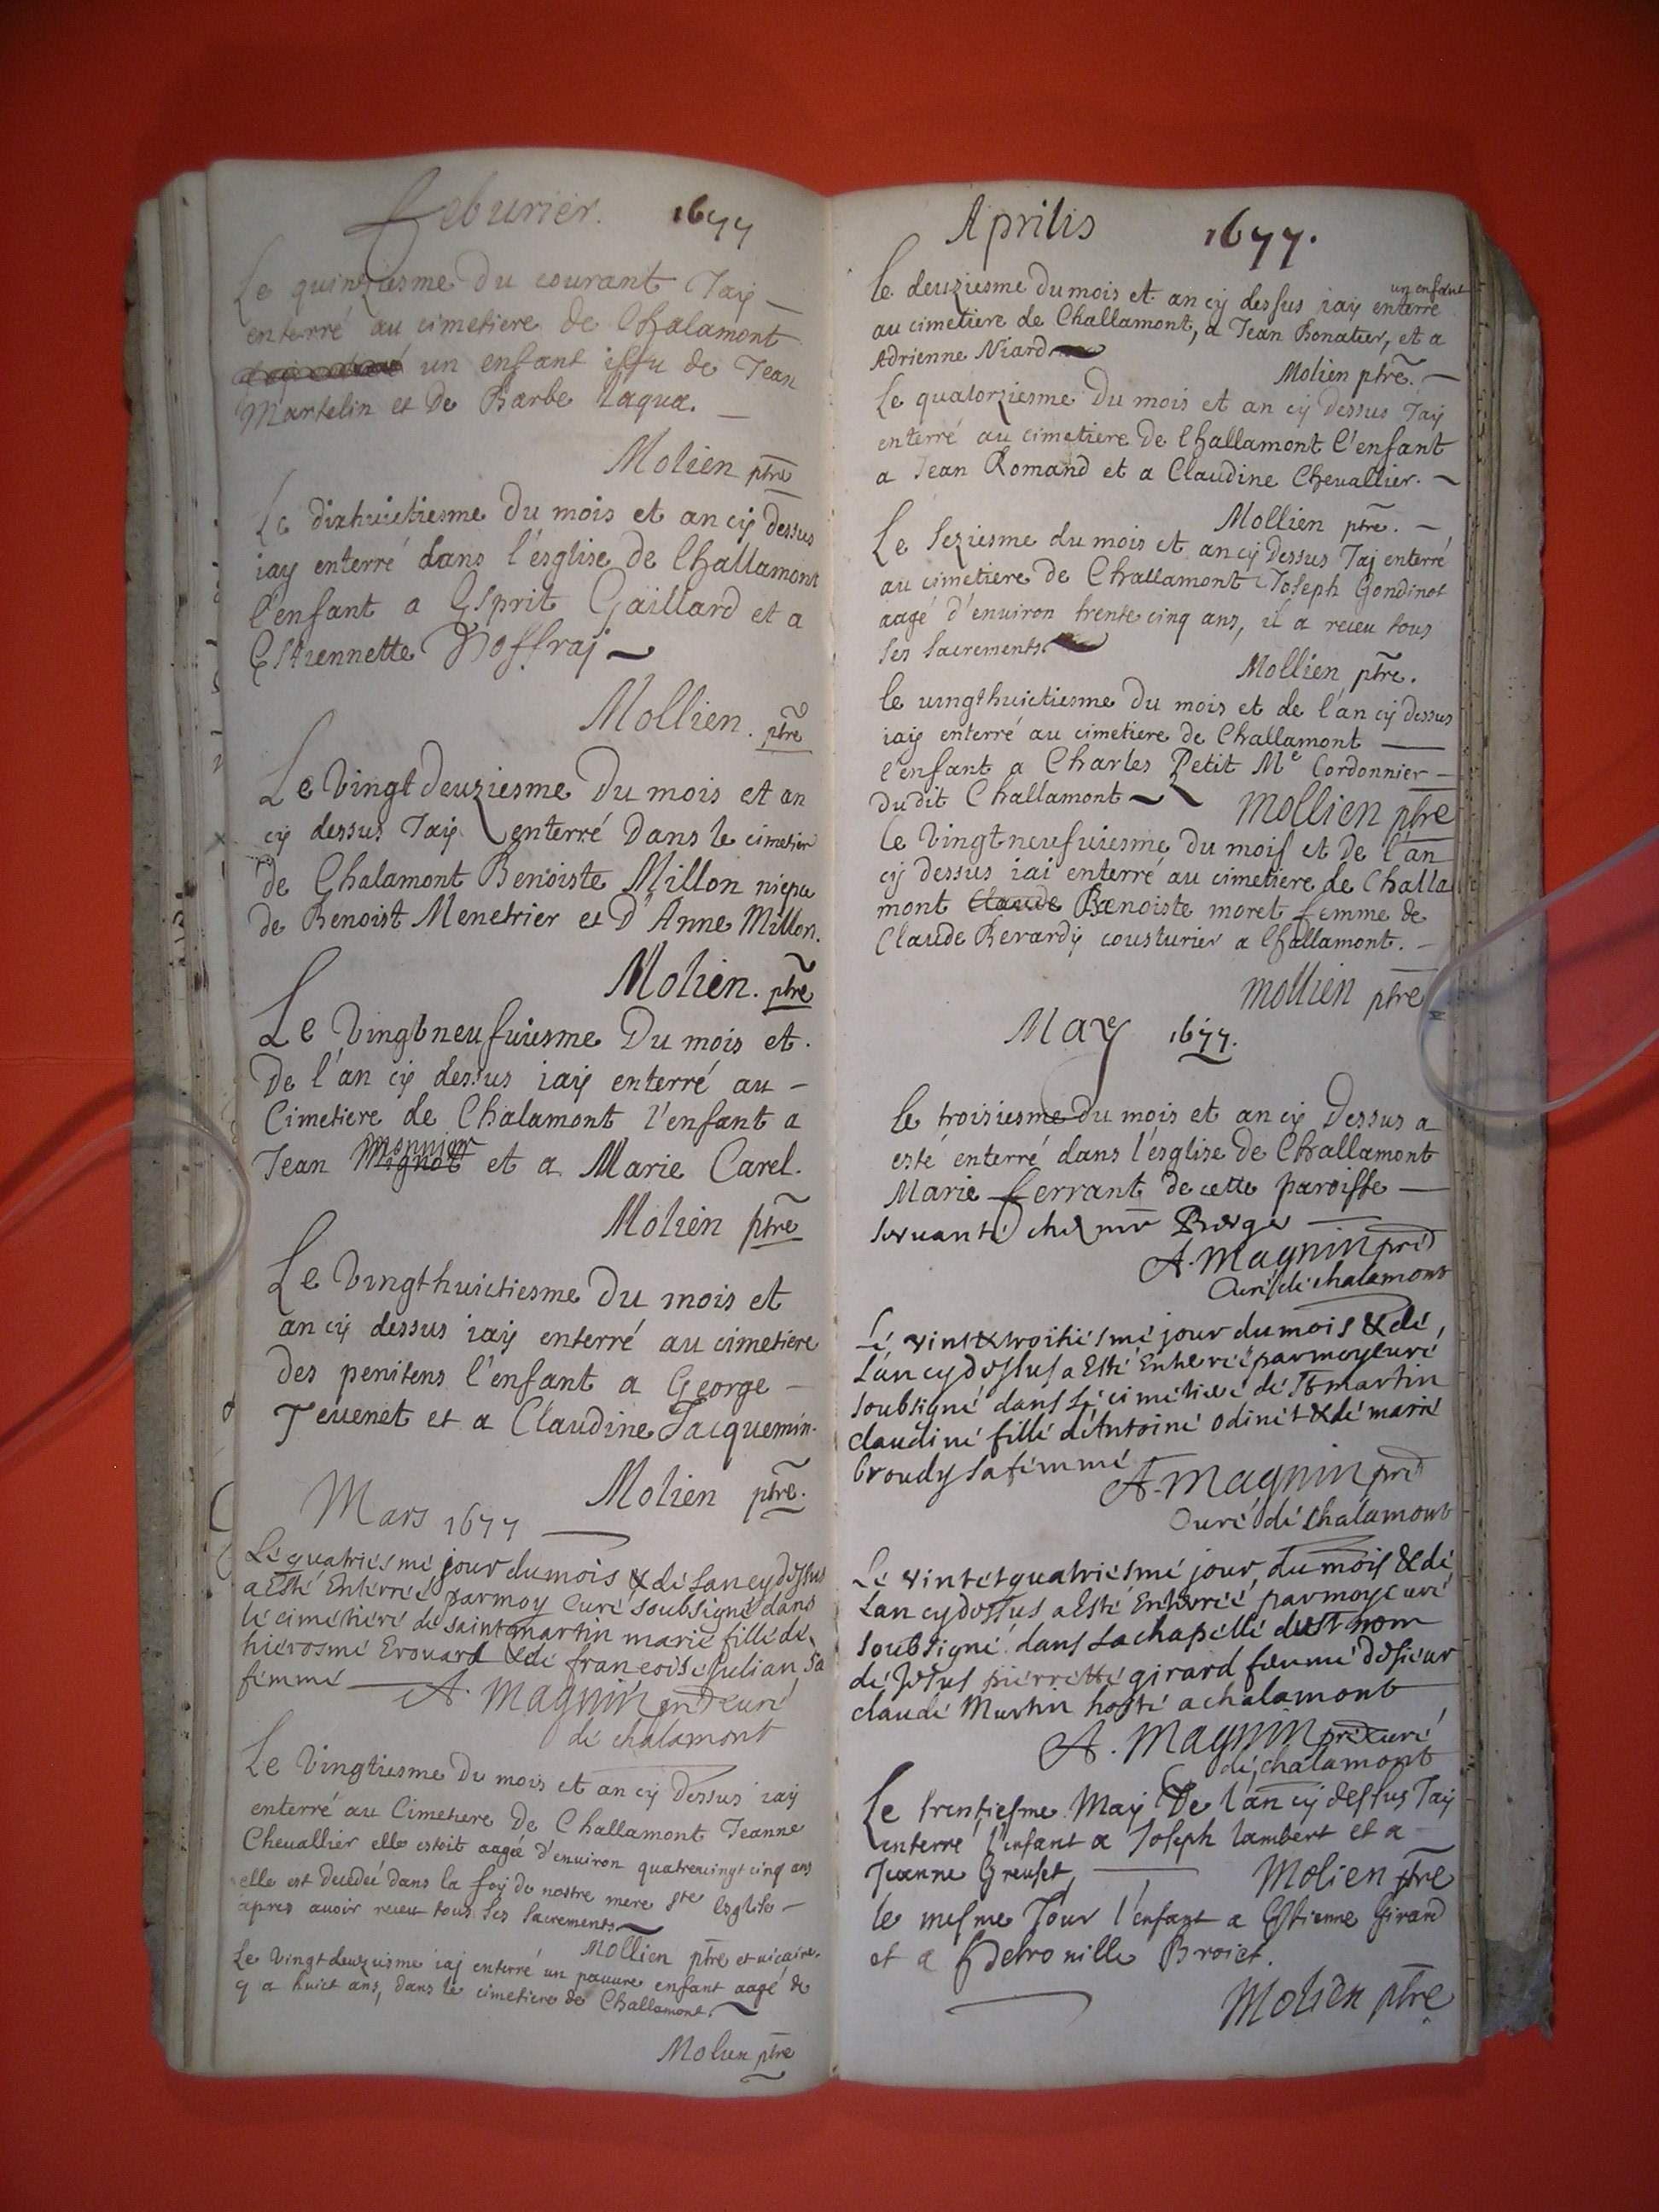 Feburier. 1677
Le quinziesme du courant Jaÿ
enterré au cimetiere de Chalamont
un enfant issu de Jean
Martelin et de Barbe Laqua.
Molien ptre
Le dixhuictiesme du mois et an cÿ dessus
iay enterré dans l'esglise de Challamont
l'enfant a Esprit Gaillard et a
Estiennette
Mollien. ptre
Le Vingt deuziesme du mois et an
cÿ dessus Jaÿ enterré dans le cimetier
de Chalamont Benoiste Millon niepce
de Benoist Menetrier et D'Anne Millon.
Molien. ptre
Le Vingtneufuiesme Du mois et
De l'an cÿ dessus iaÿ enterré au
Cimetiere de Chalamont l'enfant a
Jean Mignot Monnier et a Marie Carel.
Molien ptre
Le Vingthuictiesme Du mois et
an cÿ dessus iaÿ enterré au cimetiere
des penitens l'enfant a George
Teuenet et a Claudine Jacquemin.
Molien ptre.
Mars 1677
Lé quatriésmé jour du mois & dé lan cy dessus
a Esté Enterréé par moy Curé soubsigné dans
lé cimétiéré dé saint martin marié fillé dé
hiérosmé Erouard & dé francoisé Julian sa
fémmé A. Magnin curé
dé chalamont
Le Vingtiesme Du mois et an cÿ Dessus iaÿ
enterré au Cimetiere De Challamont Jeanne
Cheuallier elle estoit aagée d'enuiron quatreuingt cinq ans
elle est decedeé dans la foÿ de nostre mere ste Esglise
apres auoir receu tous ses sacrements
Mollien ptre et uicaire.
Le Vingtdeuziesme iaj enterré un pauure enfant aagé de
7 a huict ans, dans le cimetiere de Challamont.
Molien ptre
Aprilis 1677.
Le deuziesme du mois et an cÿ dessus iaÿ enterré un enfant
au cimetiere de Challamont, a Jean Bonatier, et a
Adrienne Niard
Molien ptre.
Le quatorziesme Du mois et an cÿ dessus Jaÿ
enterré au cimetiere de Challamont l'enfant
a Jean Romand et a Claudine Cheuallier.
Mollien ptre.
Le seziesme du mois et an cÿ Dessus Jaj enterré
au cimetiere de Challamont Joseph Gondinot
aagé d'enuiron trente cinq ans, il a receu tous
ses sacrements
Mollien ptre.
le uingthuictiesme du mois et de l'an cÿ dessus
iaÿ enterré au cimetiere de Challamont
l'enfant a Charles Petit Me Cordonnier
dudit Challamont
Mollien ptre
le Vingtneufuiesme du mois et De l'an
cÿ dessus iai enterré au cimetiere de Challa
mont Claude Benoiste moret femme de
Claude Berardÿ cousturier a Challamont.
mollien ptre
May 1677.
le troisiesme du mois et an cÿ Dessus a
esté enterré dans l'esglise de Challamont
Marie ferrant de cette paroisse
seruante chez mr Berger
A. Magnin
Curé dé chalamont
Lé vint & troisiésmé jour du mois & dé
Lan cy dessus a Esté Enterréé par moy curé
soubsigné dans Lé cimétiéré dé St martin
claudiné fillé d'Antoiné odinét & dé marié
broudy sa fémmé
A. Magnin
Curé dé chalamont
Lé vintét quatriésmé jour du mois & dé
Lan cy dessus a Esté Enterréé par moy curé
soubsigné dans La chapéllé du St nom
dé Jésus piérretté girard femmé de sieur
claudé Martin hosté a chalamont
A. Magnin curé
dé chalamont
Le trentiesme May De l'an cÿ dessus Jaÿ
enterré l'enfant a Joseph lambert et a
Jeanne Greuset,
Molien ptre
le mesme Jour l'enfant a Estienne Girard
et a Petronille Broiet.
Molien ptre